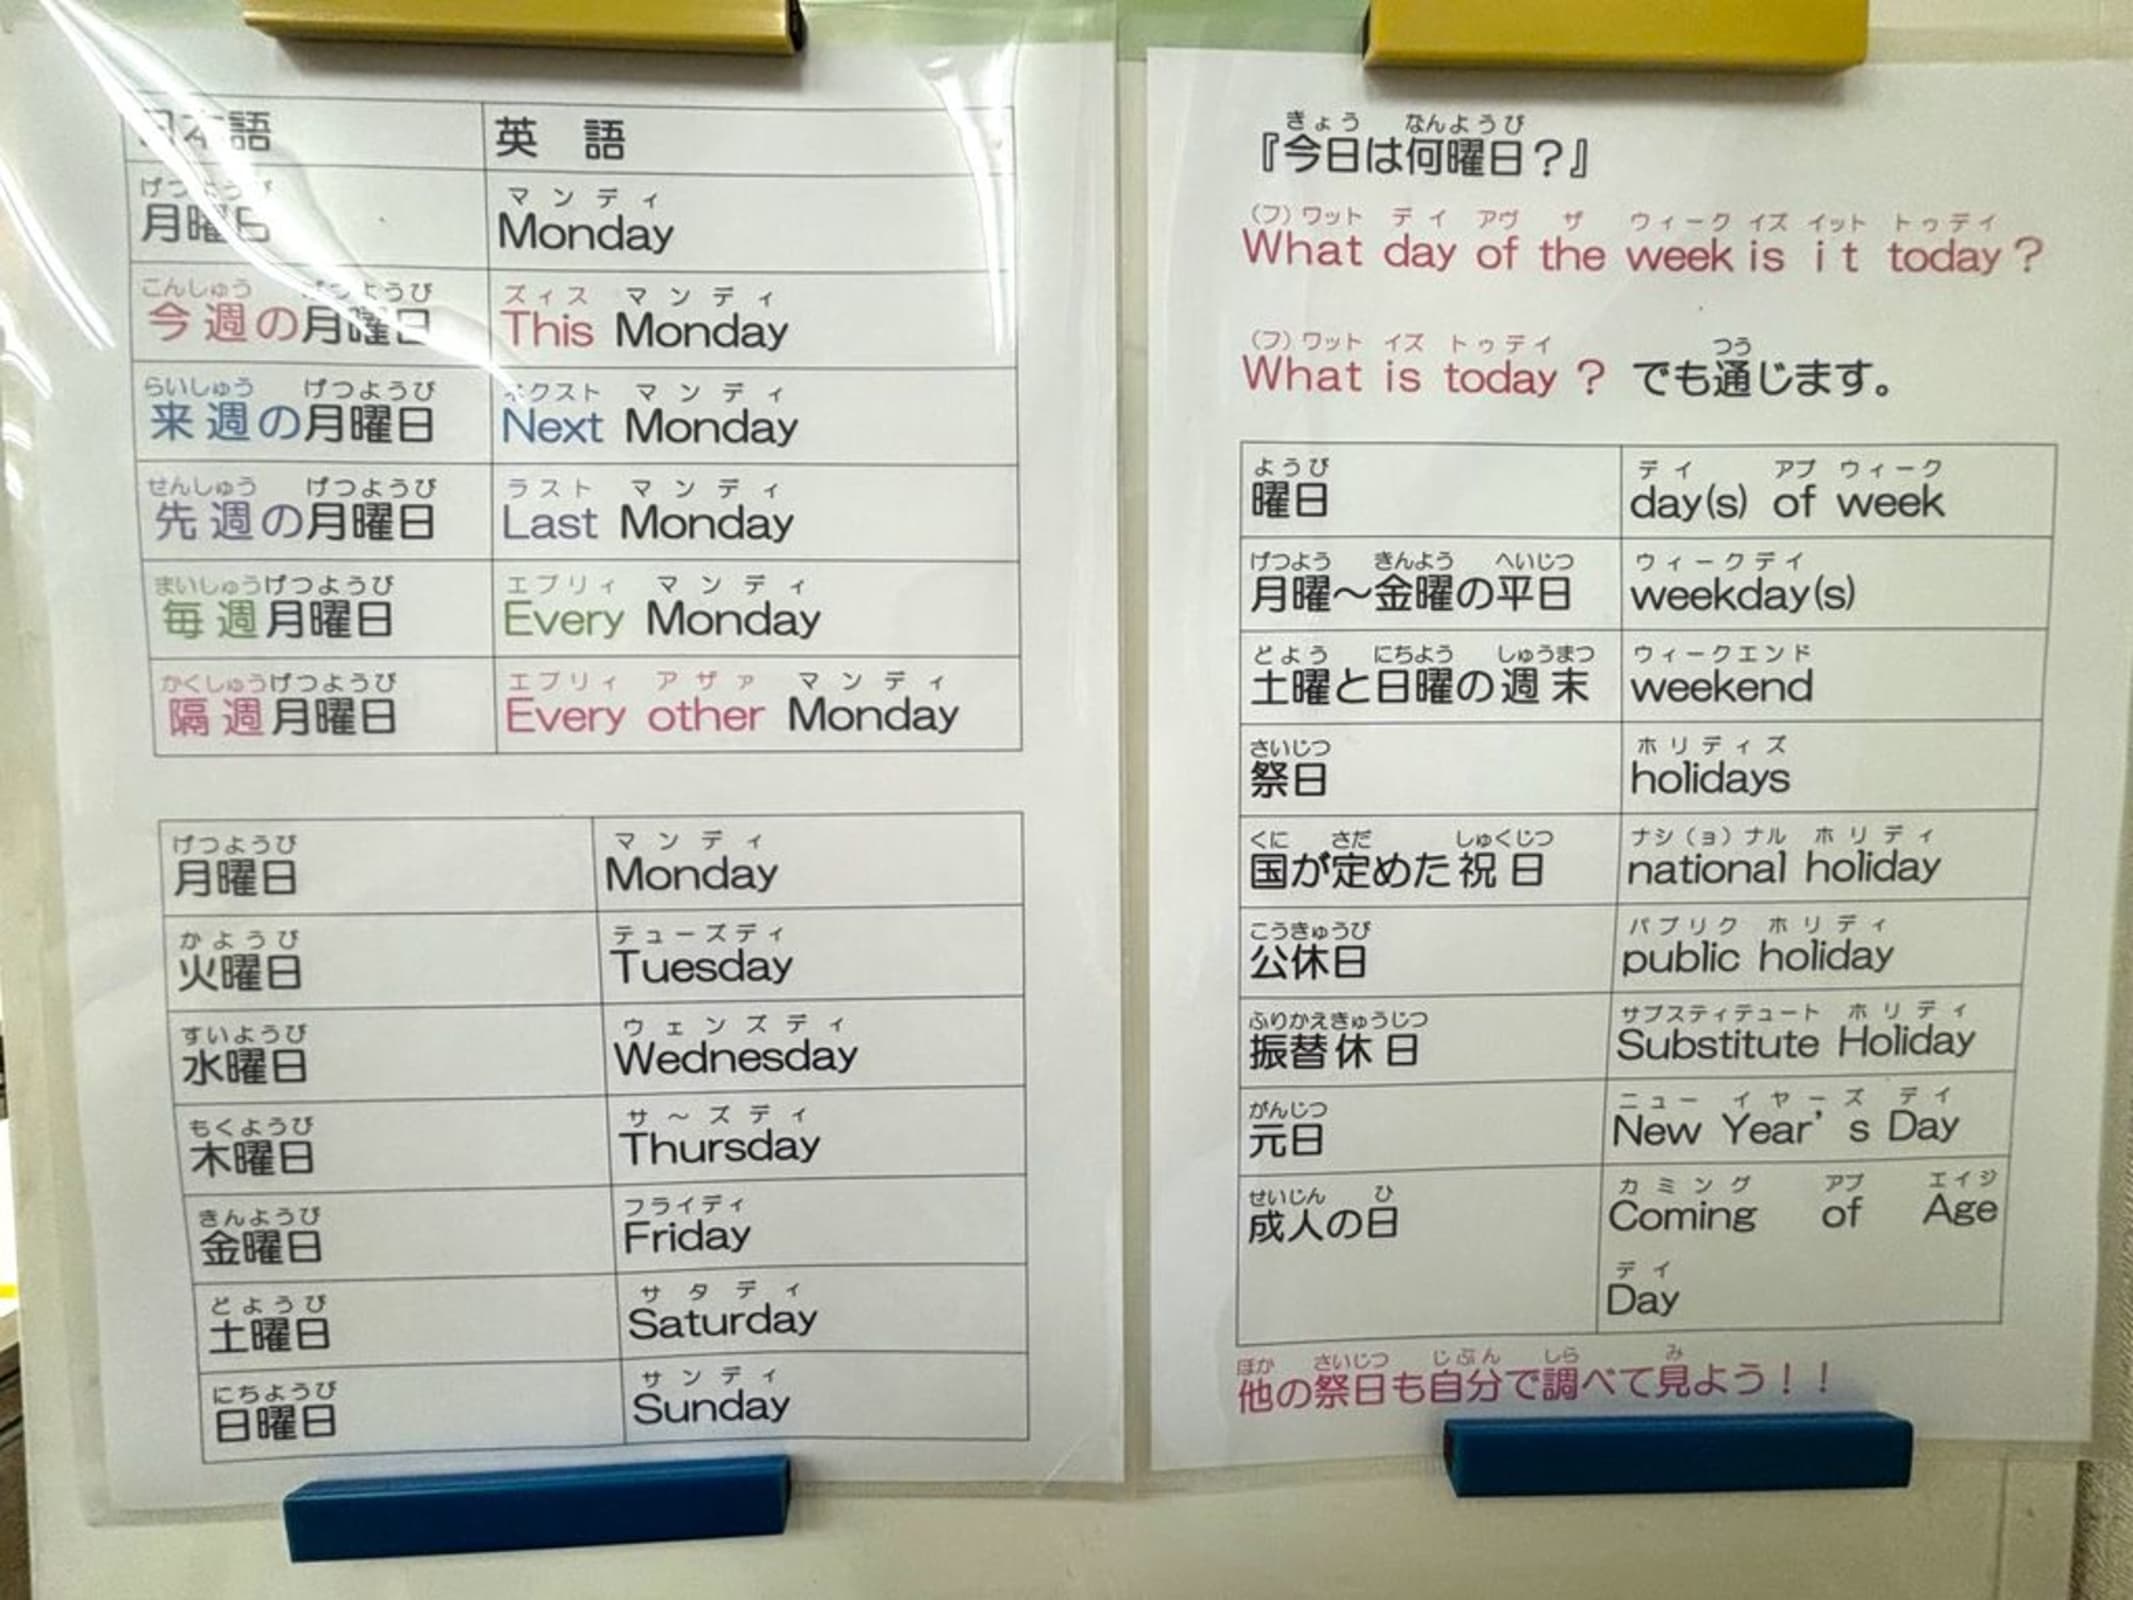 日本語 英 語
げつようび マンディ
月曜日 Monday
こんしゅう げつようび ズィス マンディ
今週の月曜日 This Monday
らいしゅう げつようび ネクスト マンディ
来週の月曜日 Next Monday
せんしゅう げつようび ラスト マンディ
先週の月曜日 Last Monday
まいしゅうげつようび エブリィ マンディ
毎週月曜日 Every Monday
かくしゅうげつようび エブリィ アザァ マンディ
隔週月曜日 Every other Monday
げつようび マンディ
月曜日 Monday
かようび テューズディ
火曜日 Tuesday
すいようび ウェンズディ
水曜日 Wednesday
もくようび サ～ズディ
木曜日 Thursday
きんようび フライディ
金曜日 Friday
どようび サタディ
土曜日 Saturday
にちようび サンディ
日曜日 Sunday
きょう なんようび
『今日は何曜日？』
（フ）ワット デイ アヴ ザ ウィーク イズ イット トゥデイ
What day of the week is it today？
（フ）ワット イズ トゥデイ つう
What is today？ でも通じます。
ようび デイ アブ ウィーク
曜日 day(s) of week
げつよう きんよう へいじつ ウィークデイ
月曜～金曜の平日 weekday(s)
どよう にちよう しゅうまつ ウィークエンド
土曜と日曜の週末 weekend
さいじつ ホリディズ
祭日 holidays
くに さだ しゅくじつ ナシ（ョ）ナル ホリディ
国が定めた祝日 national holiday
こうきゅうび パブリク ホリディ
公休日 public holiday
ふりかえきゅうじつ サブスティテュート ホリディ
振替休日 Substitute Holiday
がんじつ ニュー イヤーズ デイ
元日 New Year’s Day
せいじん ひ カミング アブ エイジ
成人の日 Coming of Age
デイ
Day
ほか さいじつ じぶん しら み
他の祭日も自分で調べて見よう！！